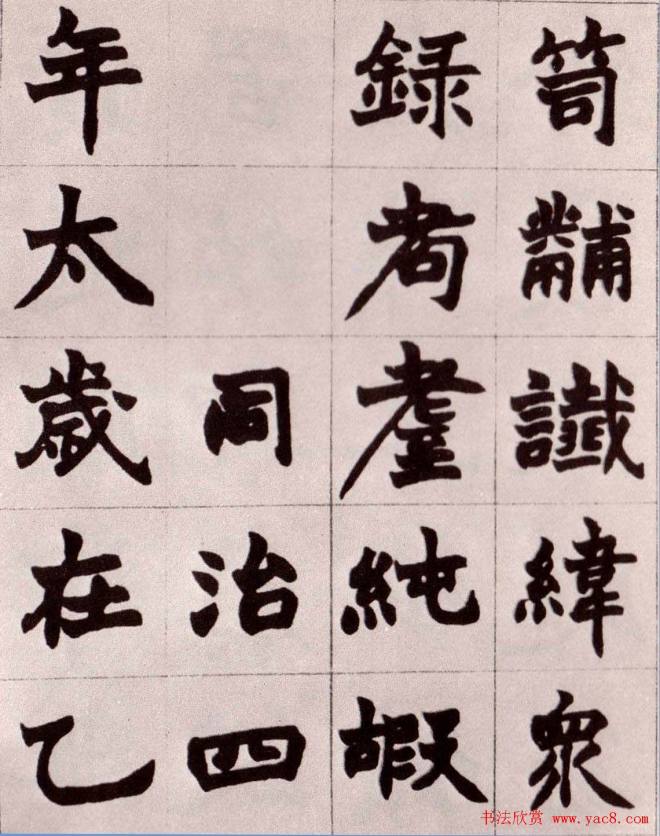 笥黼讖緯眾
錄耇耋純嘏
同治四
年太歲在乙
书法欣赏 www.yac8.com